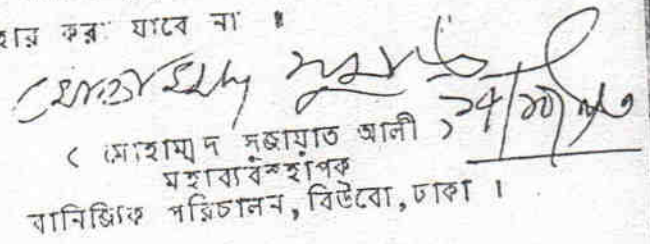 হার করা যাবে না ।
২৭/১০/৮৩
( মোহাম্মদ সুজায়াত আলী )
মহাব্যবস্থাপক
বানিজ্যিক পরিচালন, বিউবো, ঢাকা ।